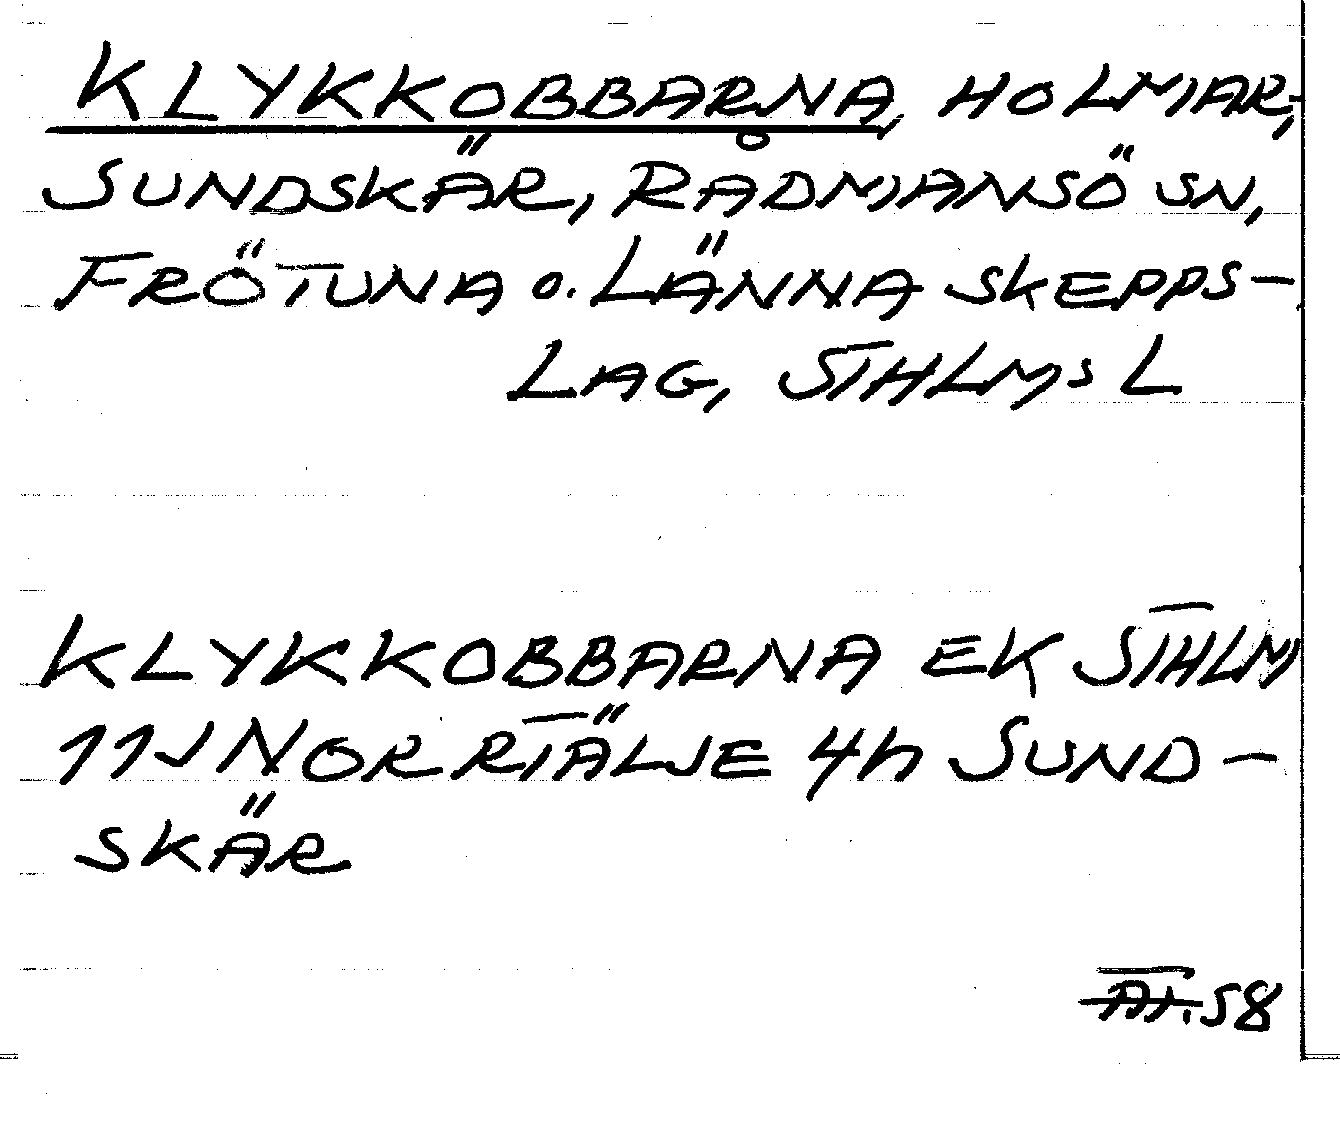 KLYKKOBBARNA, HOLMAR,
SUNDSKÄR, RÅDMANSÖ SN,
FRÖTUNA o. LÄNNA SKEPPS-
LAG, STHLMS L
KLYKKOBBARNA EK STHLM
11J NORRTÄLJE 4h SUND-
SKÄR
58